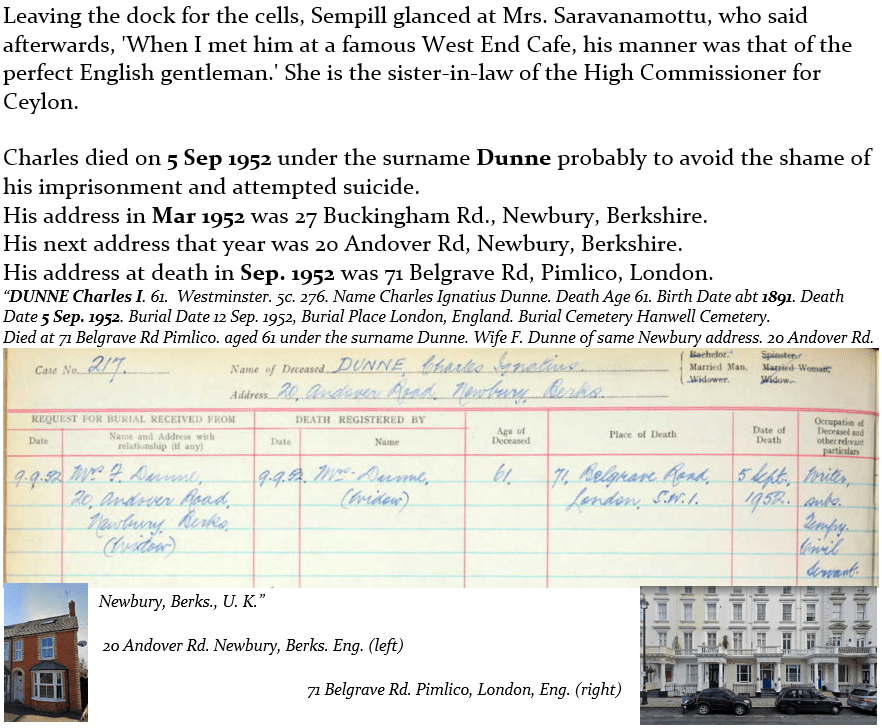 Leaving the dock for the cells, Sempill glanced at Mrs. Saravanamottu, who said
afterwards, 'When I met him at a famous West End Cafe, his manner was that of the
perfect English gentleman.' She is the sister-in-law of the High Commissioner for
Ceylon.
Charles died on 5 Sep 1952 under the surname Dunne probably to avoid the shame of
his imprisonment and attempted suicide.
His address in Mar 1952 was 27 Buckingham Rd., Newbury, Berkshire.
His next address that year was 20 Andover Rd, Newbury, Berkshire.
His address at death in Sep. 1952 was 71 Belgrave Rd, Pimlico, London.
“DUNNE Charles I. 61. Westminster. 5c. 276. Name Charles Ignatius Dunne. Death Age 61. Birth Date abt 1891. Death
Date 5 Sep. 1952. Burial Date 12 Sep. 1952, Burial Place London, England. Burial Cemetery Hanwell Cemetery.
Died at 71 Belgrave Rd Pimlico. aged 61 under the surname Dunne. Wife F. Dunne of same Newbury address. 20 Andover Rd.
Case No. 217. Name of Deceased DUNNE, Charles Ignatius. Bachelor. Spinster
Married Man. Married Woman,
Address 20, Andover Road, Newbury, Berks. Widower. Widow.
REQUEST FOR BURIAL RECEIVED FROM
Date
Name and Address with
relationship (if any)
DEATH REGISTERED BY
Date
Name
Age of
Deceased
Place of Death
Date of
Death
Occupation of
Deceased and
other relevant
particulars
9.9.52 Mrs F. Dunne, 9.9.52. Mrs. Dunne, 61. 71, Belgrave Road, 5 Sept., Writer,
20, Andover Road, (Widow) London, S.W.1. 1952. subs.
Newbury, Berks. Tempy.
(Widow) Civil
Servant.
Newbury, Berks., U. K.”
20 Andover Rd. Newbury, Berks. Eng. (left)
71 Belgrave Rd. Pimlico, London, Eng. (right)